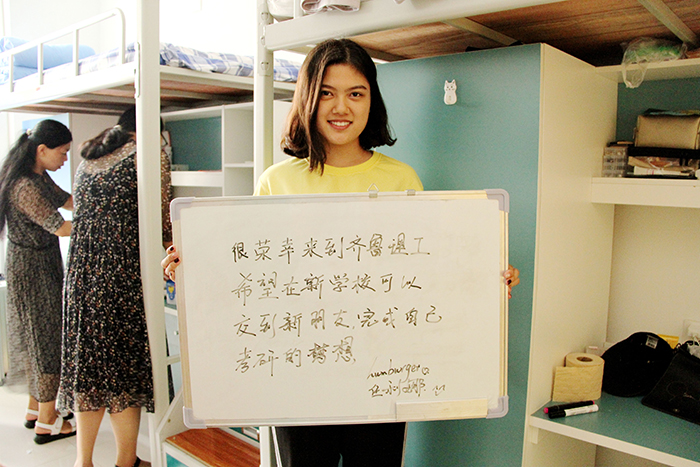 很荣幸来到齐鲁理工
希望在新学校可以
交到新朋友完成自己
考研的梦想
hunburger